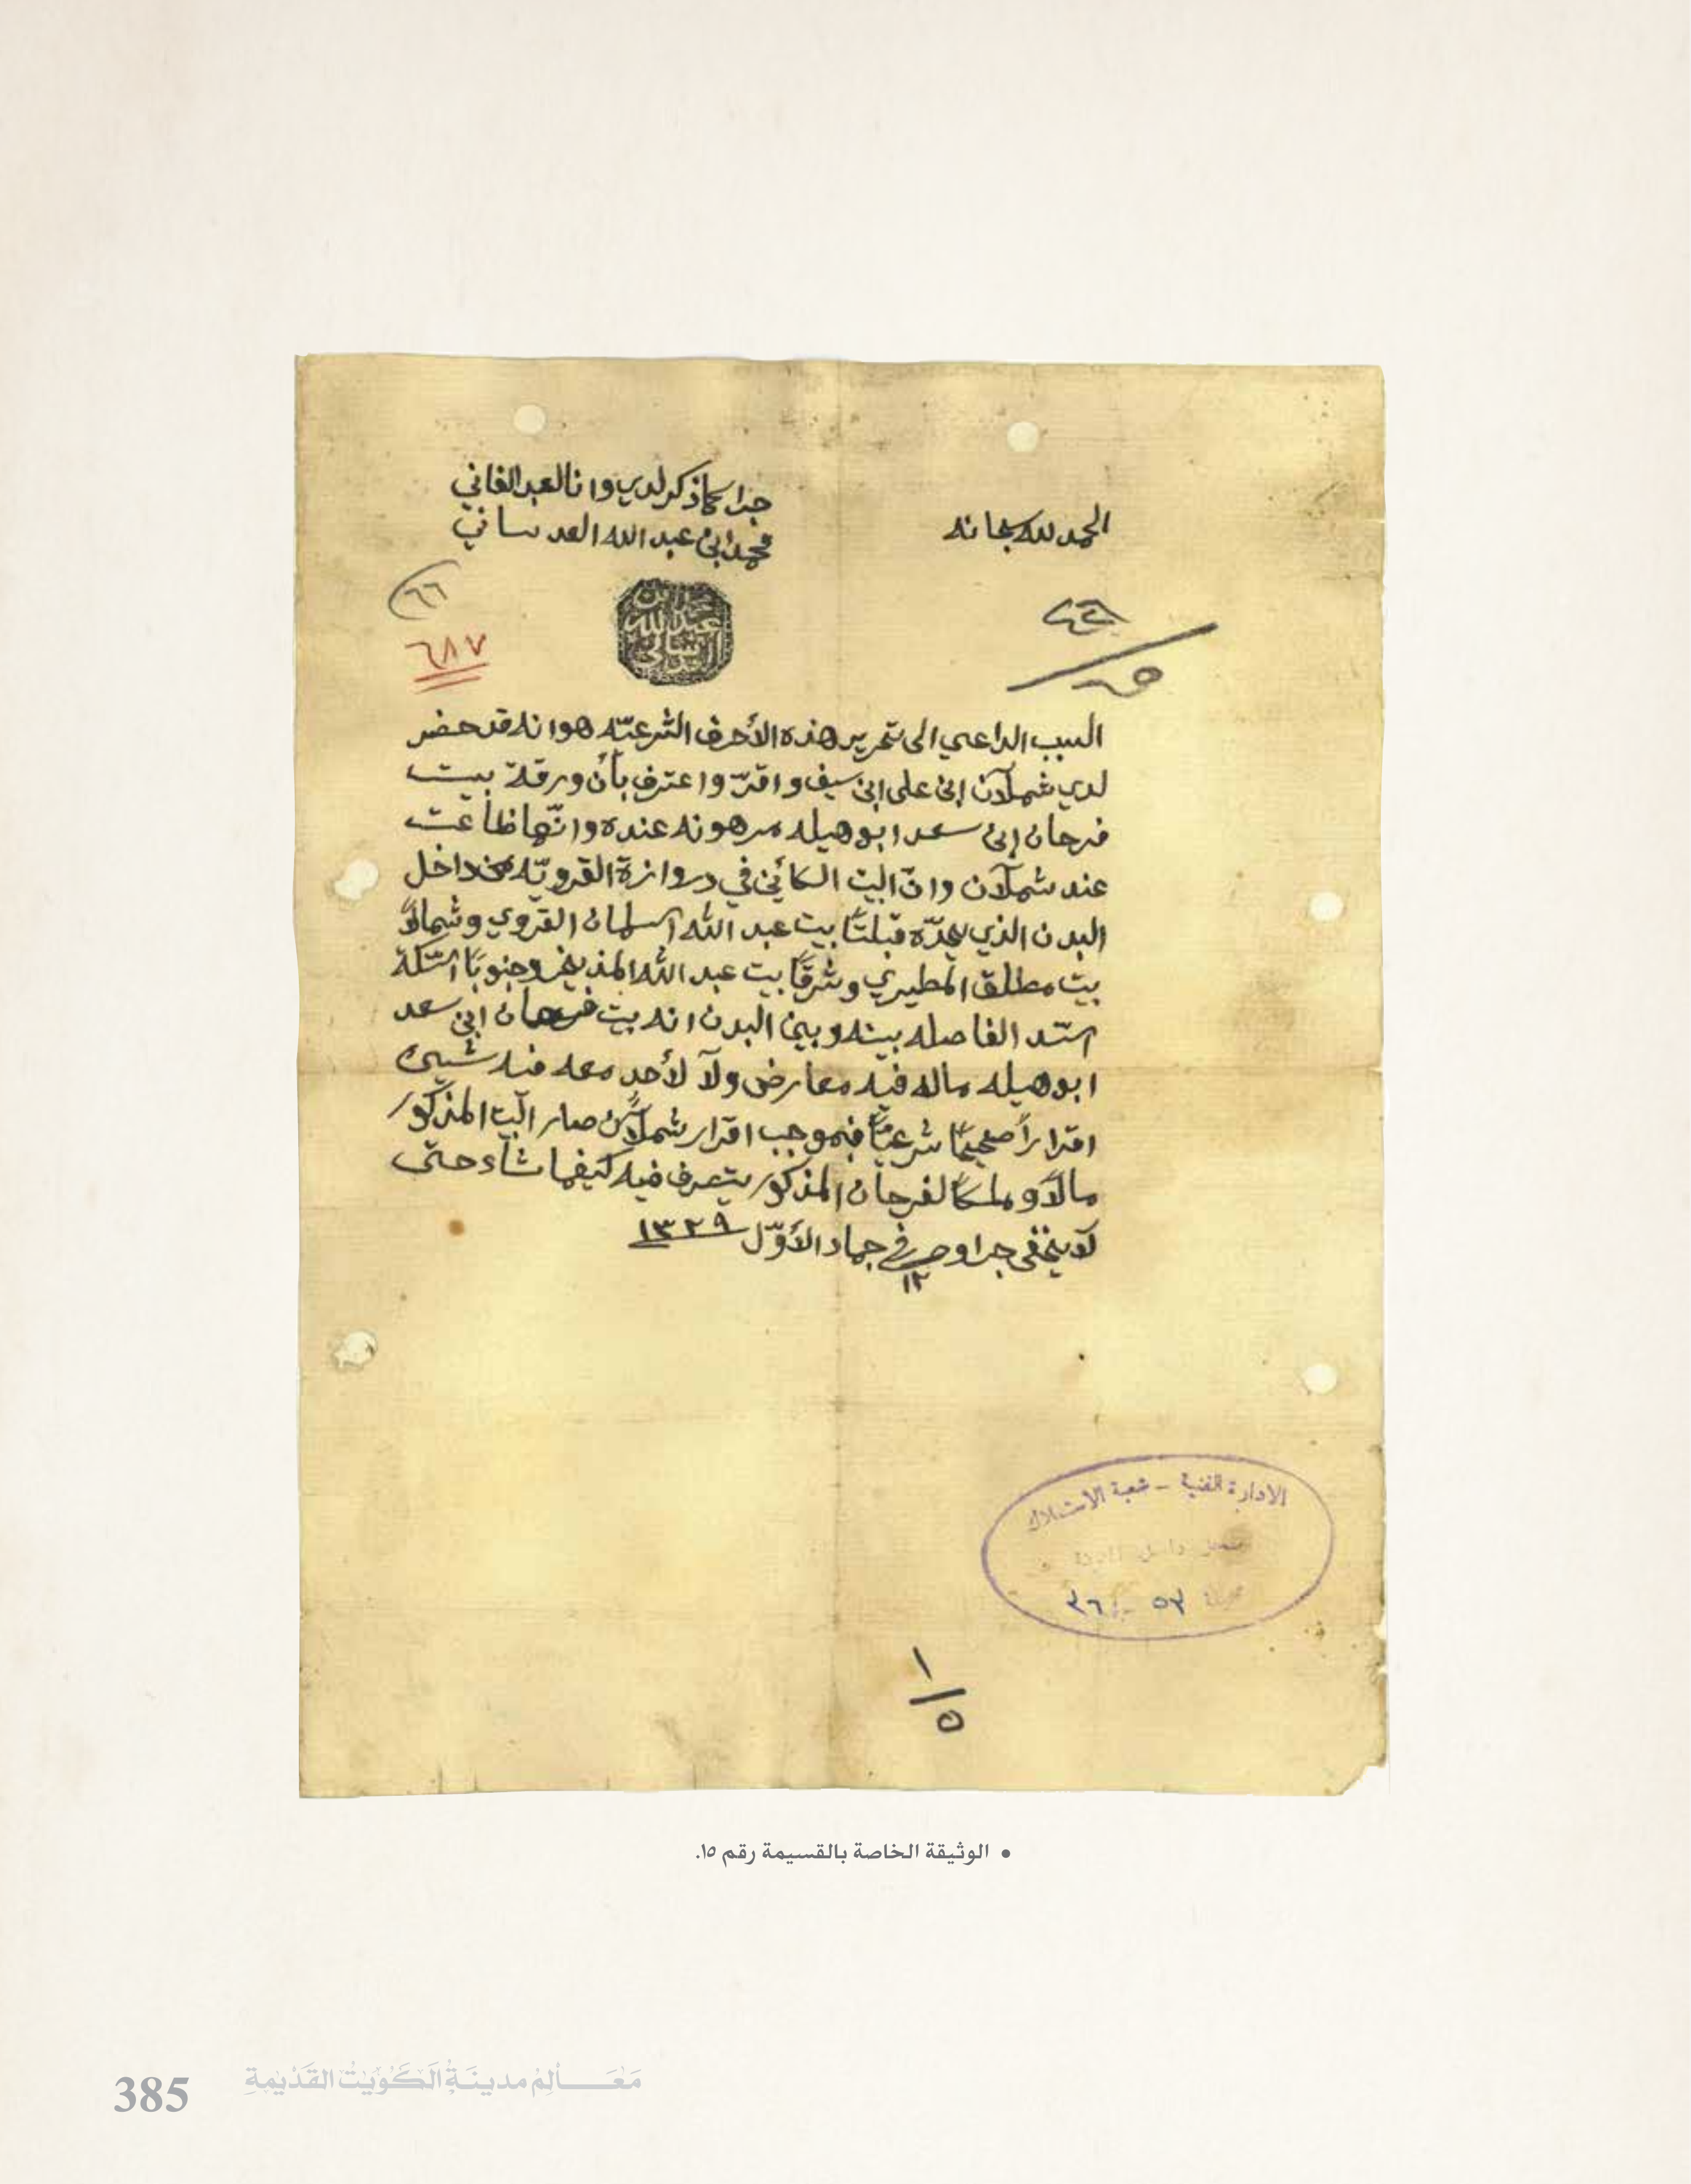 الحمد لله سبحانه
جرا كما ذكر لدي وانا العبد الفاني
محمد ابن عبد الله العدساني
٦٨٧
السبب الداعي الى تحرير هذه الأحرف الشرعيّه هوانه قد حضر
لدي شملآن ابن على ابن سيف واقرّ واعترف بأن ورقة بيت
فرحان ابن سعد ابو هيله مرهونه عنده وانّها ظاعت
عند شملآن وانّ البيت الكائن في دروازة القرويّه من داخل
البدن الذي يحدّه قبلتاً بيت عبد الله السلمان القروي وشمالاً
بيت مطلق المطيري وشرقاً بيت عبد الله المذيخر وجنوباً السّكة
السّد الفاصله بينه وبين البدن انه بيت فرحان ابن سعد
ابو هيله ماله فيه معارض ولآ لأحد معه فيه شيئ
اقراراً صحيحاً شرعيّاً فبموجب اقرار شملآن صار البيت المذكور
مالاً وملكاً لفرحان المذكور يتصرف فيه كيفما شاء حتى
لا يخفى جرا وحرر في ١٢ جماد الأوّل ١٣٢٩
الادارة الفنية – شعبة الاستملاك
١/٥
• الوثيقة الخاصة بالقسيمة رقم ١٥.
385
مَعَالِم مدينَة الكُوَيْت القَدْيمةِ